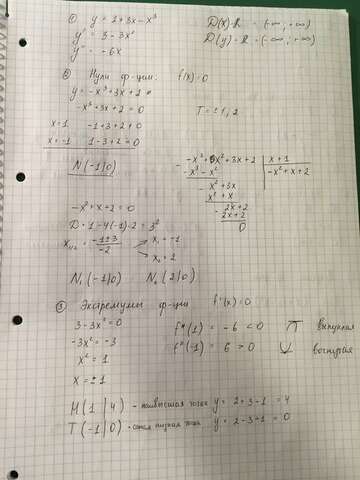 ① y = 2+3x-x³ D(x) = R = (-∞; +∞)
y' = 3-3x² D(y) = R = (-∞; +∞)
y'' = -6x
② Нули ф-ции: f(x)=0
y = -x³+3x+2
-x³+3x+2 = 0 T = ±1, 2
x=1 -1+3+2≠0
x=-1 1-3+2=0
N(-1|0)
-x³+0x²+3x+2 | x+1
-x³-x² | -x²+x+2
x²+3x
x²+x
2x+2
2x+2
0
-x²+x+2=0
D = 1-4(-1)·2 = 3²
x₁,₂ = (-1±3)/(-2) x₁ = -1
x₂ = 2
N₁(-1|0) N₂(2|0)
③ Экстремумы ф-ции f'(x)=0
3-3x²=0 f''(1) = -6 < 0 выпуклая
-3x² = -3 f''(-1) = 6 > 0 вогнутая
x² = 1
x = ±1
H(1|4) - наивысшая точка y = 2+3-1 = 4
T(-1|0) - самая низкая точка y = 2-3+1 = 0